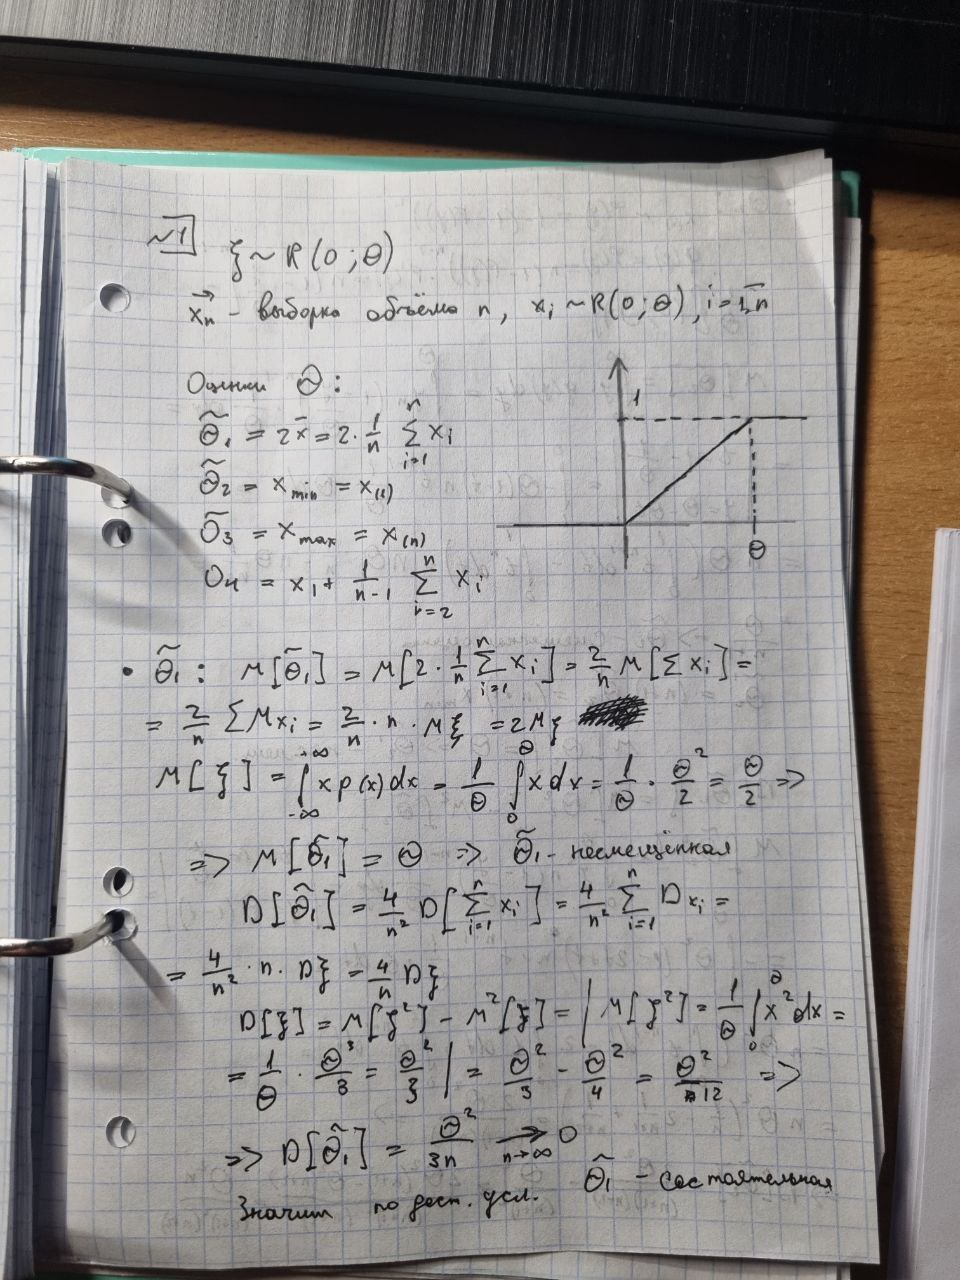 №1
ξ ~ R(0; Θ)
x⃗ₙ - выборка объёма n, xᵢ ~ R(0; Θ), i = 1,n
Оценки Θ:
Θ̃₁ = 2x̄ = 2 · 1/n ∑ᵢ₌₁ⁿ xᵢ
Θ̃₂ = x_min = x₍₁₎
Θ̃₃ = x_max = x₍ₙ₎
Θ̃₄ = x₁ + 1/(n-1) ∑ᵢ₌₂ⁿ xᵢ
1
Θ
• Θ̃₁: M[Θ̃₁] = M[2 · 1/n ∑ᵢ₌₁ⁿ xᵢ] = 2/n M[∑ xᵢ] =
= 2/n ∑ Mxᵢ = 2/n · n · Mξ = 2Mξ
M[ξ] = ∫₋∞⁺∞ x p(x) dx = 1/Θ ∫₀^Θ x dx = 1/Θ · Θ²/2 = Θ/2 =>
=> M[Θ̃₁] = Θ => Θ̃₁ - несмещённая
D[Θ̃₁] = 4/n² D[∑ᵢ₌₁ⁿ xᵢ] = 4/n² ∑ᵢ₌₁ⁿ Dxᵢ =
= 4/n² · n · Dξ = 4/n Dξ
D[ξ] = M[ξ²] - M²[ξ] = | M[ξ²] = 1/Θ ∫₀^Θ x² dx =
= 1/Θ · Θ³/3 = Θ²/3 | = Θ²/3 - Θ²/4 = Θ²/12 =>
=> D[Θ̃₁] = Θ²/3n →_(n→∞) 0
Значит по дост. усл. Θ̃₁ - состоятельная